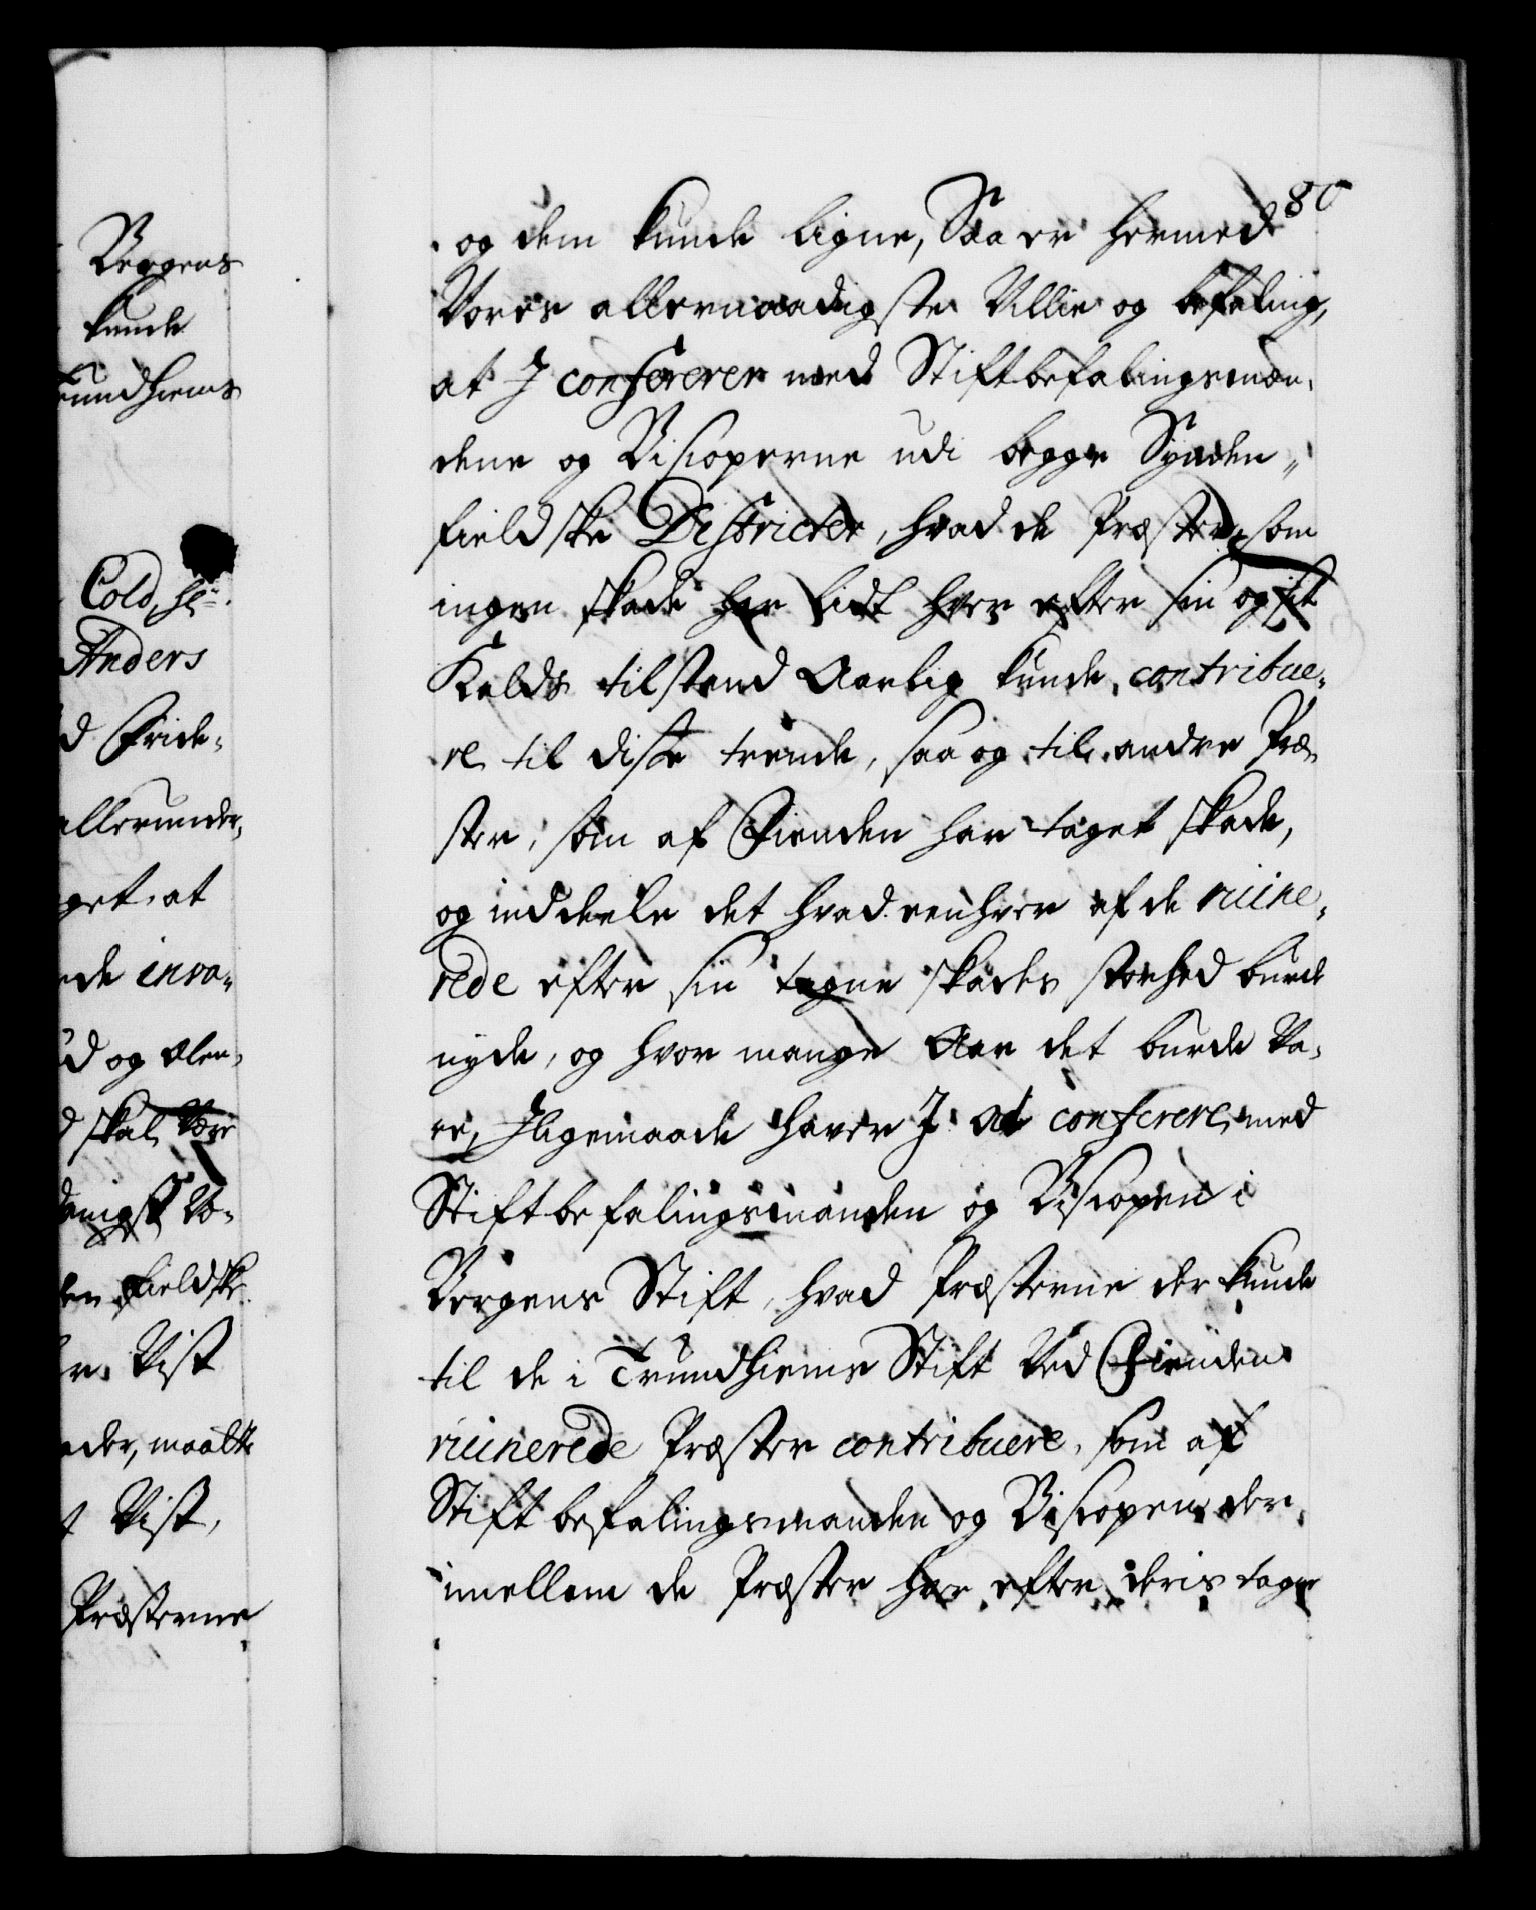 Bergens
kunde
rundhiems
Cold, hr.
Anders
d Fride-
allerunder,
get, at
de inva-
d og Olen,
d skal Være
danigst Vo-
en fieldske
r Vist
der, maatte
t Vist,
Præsterne
80
og dem kunde ligne, Saa er hermed
Vores allernaadigste Villie og befaling,
at J confererer med Stiftbefalingsmæn-
dene og Biscoperne udi begge Synden-
fieldske Districter, hvad de Præster, som
ingen skade har lidt hver efter sin og sit
Kalds tilstand Aarlig kunde contribue-
re til diße trende, saa og til andre Præ-
ster, som af Fienden har taget skade,
og inddeele det hvad eenhver af de ruine-
rede efter sin tagne skades storhed burde
nyde, og hvor mange Aar det burde Va-
re, Jligemaade haver J at conferere, med
Stiftbefalingsmanden og Biscopen i
Bergens Stift, hvad Præsterne der kunde
til de i Trundhiems Stift Ved Fienden
ruinerede Præster contribuere, som af
Stiftbefalingsmanden og Biscopen der
imellem de Præster har efter deris tagne